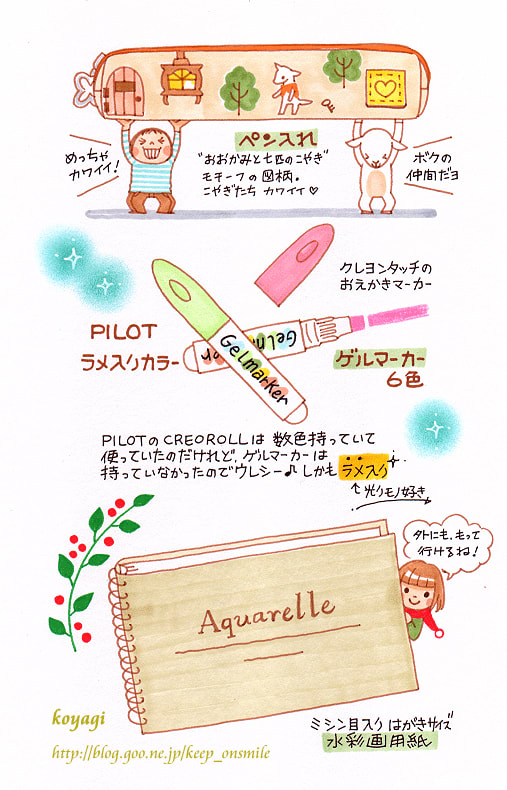 ペン入れ
めっちゃ
カワイイ！
"おおかみと七匹のこやぎ"
モチーフの図柄。
こやぎたち カワイイ♡
ボクの
仲間だヨ
クレヨンタッチの
おえかきマーカー
PILOT
ラメ入りカラー
Gelmarker
Gelmar
or
ゲルマーカー
6色
PILOTのCREOROLLは 数色持っていて
使っていたのだけれど、ゲルマーカーは
持っていなかったのでウレシー♪ しかも ラメ入り
↑光りモノ好き
外にも、もって
行けるね！
Aquarelle
koyagi
http://blog.goo.ne.jp/keep_onsmile
ミシン目入り はがきサイズ
水彩画用紙